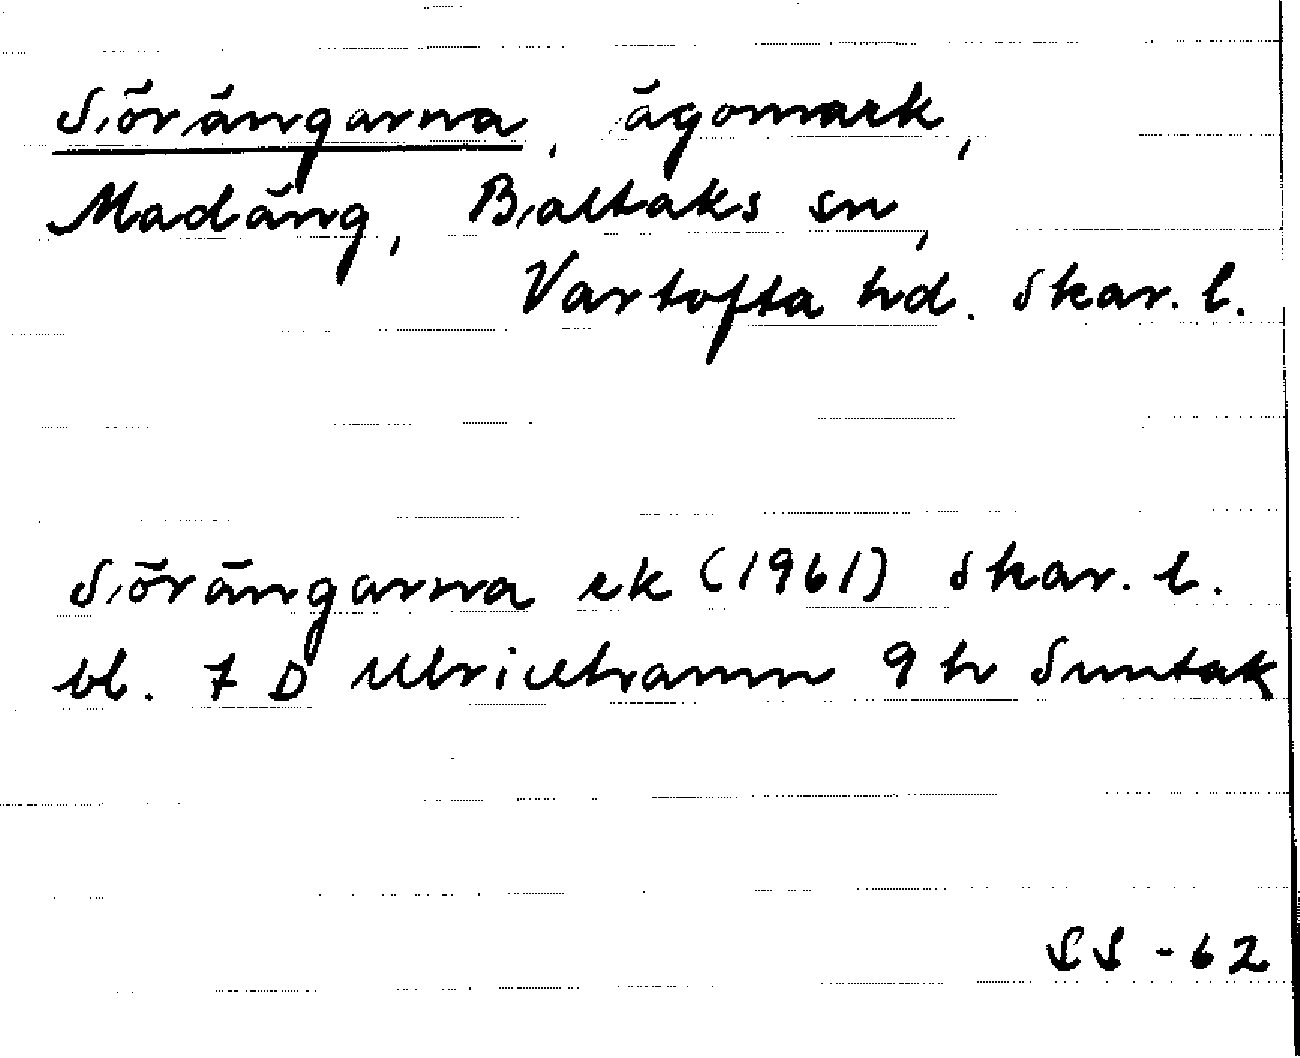 Sörängarna, ägomark,
Madäng, Baltaks sn,
Vartofta hd. Skar. l.
Sörängarna ek (1961) Skar. l.
bl. 7 D Ulricehamn 9 h Suntak
SS - 62